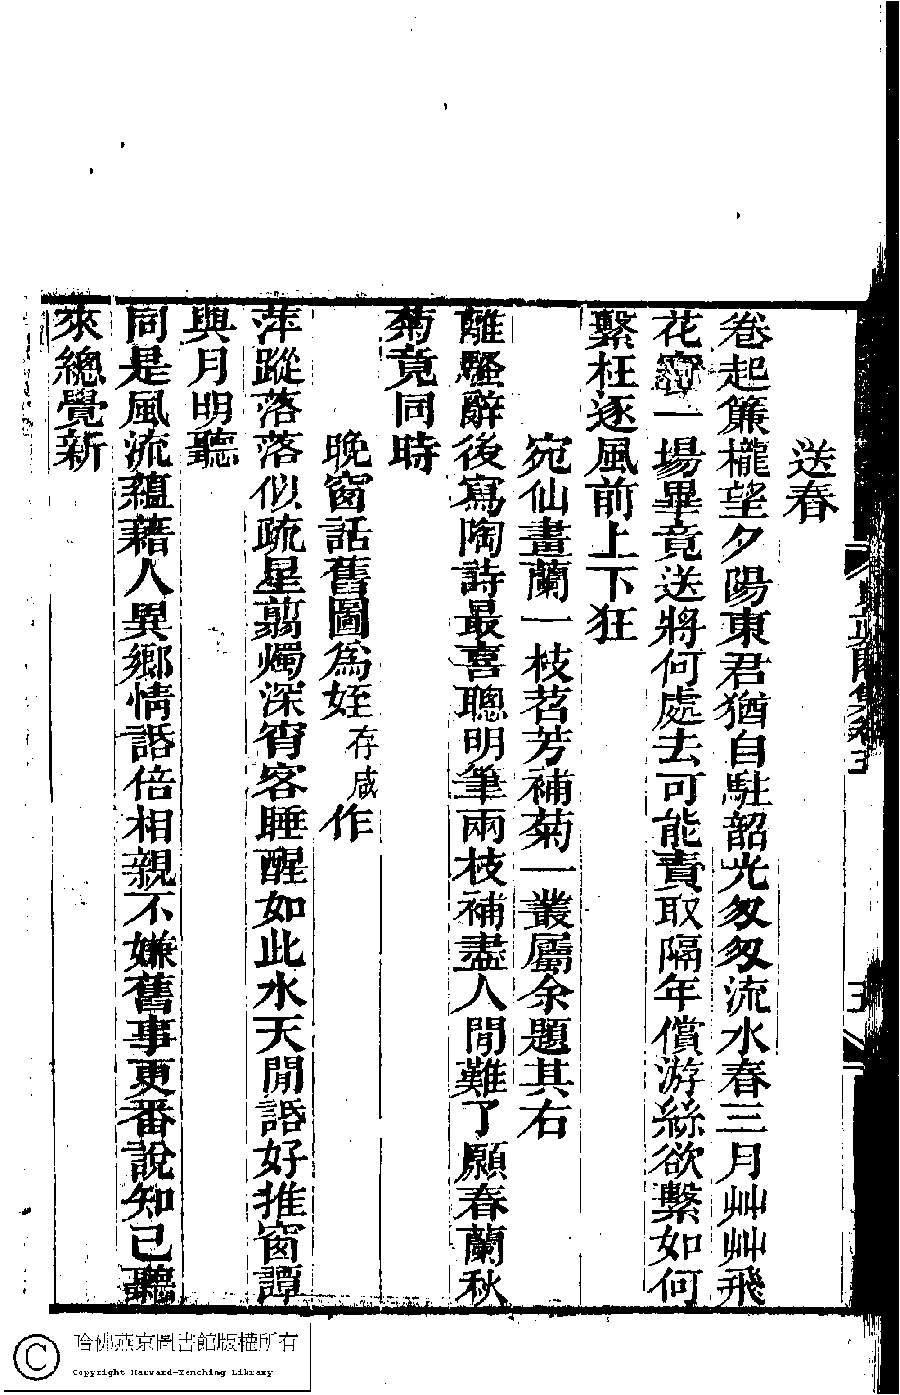 送春
卷起簾櫳望夕陽東君猶自駐韶光匆匆流水春三月艸艸飛
花一場畢竟送將何處去可能責取隔年償游絲欲繫如何
繫枉逐風前上下狂
宛仙畫蘭一枝茗芳補菊一叢屬余題其右
離騷辭後寫陶詩最喜聰明筆兩枝補盡人間難了願春蘭秋
菊竟同時
晚窗話舊圖為姪存咸作
萍蹤落落似疏星翦燭深宵客睡醒如此水天閒話好推窗譚
與月明聽
同是風流蘊藉人異鄉情話倍相親不嫌舊事更番說知己聽
來總覺新
集卷五
五
哈佛燕京圖書館版權所有
Copyright Harvard-Yenching Library